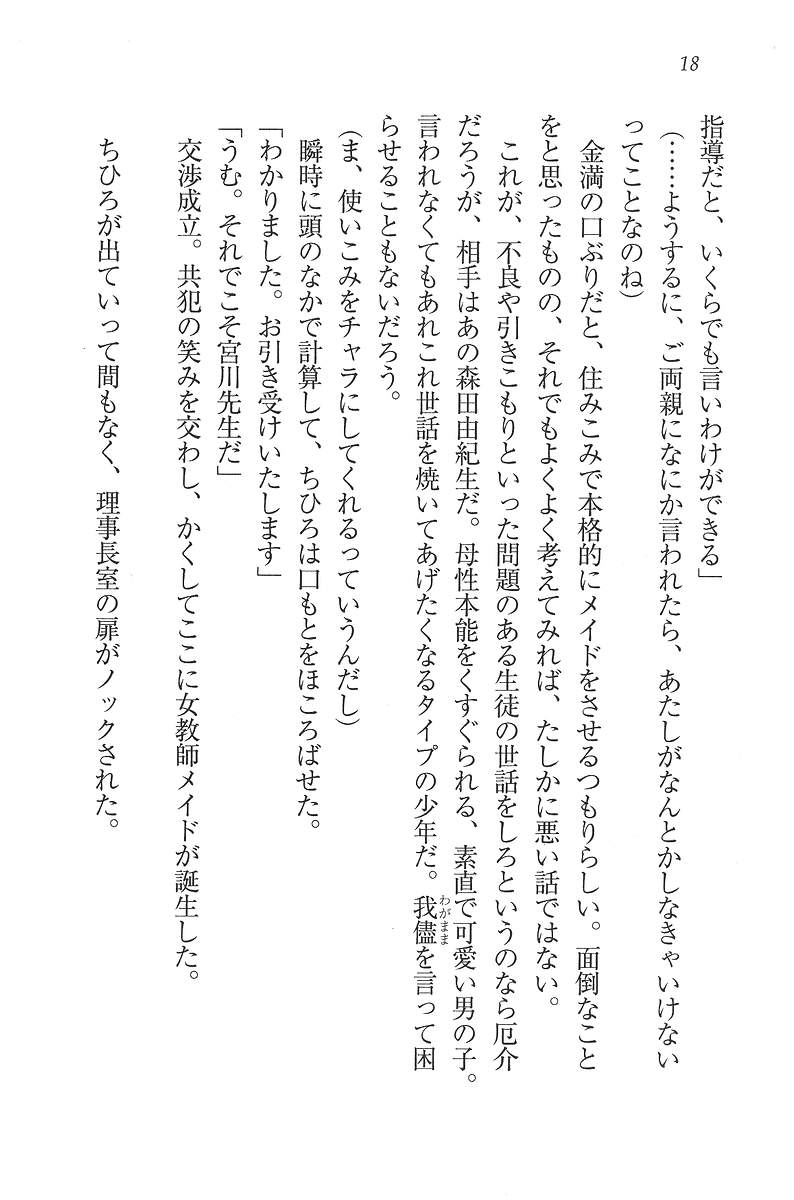 18
指導だと、いくらでも言いわけができる」
（……ようするに、ご両親になにか言われたら、あたしがなんとかしなきゃいけない
ってことなのね）
金満の口ぶりだと、住みこみで本格的にメイドをさせるつもりらしい。面倒なこと
をと思ったものの、それでもよくよく考えてみれば、たしかに悪い話ではない。
これが、不良や引きこもりといった問題のある生徒の世話をしろというのなら厄介
だろうが、相手はあの森田由紀生だ。母性本能をくすぐられる、素直で可愛い男の子。
言われなくてもあれこれ世話を焼いてあげたくなるタイプの少年だ。我儘わがままを言って困
らせることもないだろう。
（ま、使いこみをチャラにしてくれるっていうんだし）
瞬時に頭のなかで計算して、ちひろは口もとをほころばせた。
「わかりました。お引き受けいたします」
「うむ。それでこそ宮川先生だ」
交渉成立。共犯の笑みを交わし、かくしてここに女教師メイドが誕生した。
ちひろが出ていって間もなく、理事長室の扉がノックされた。